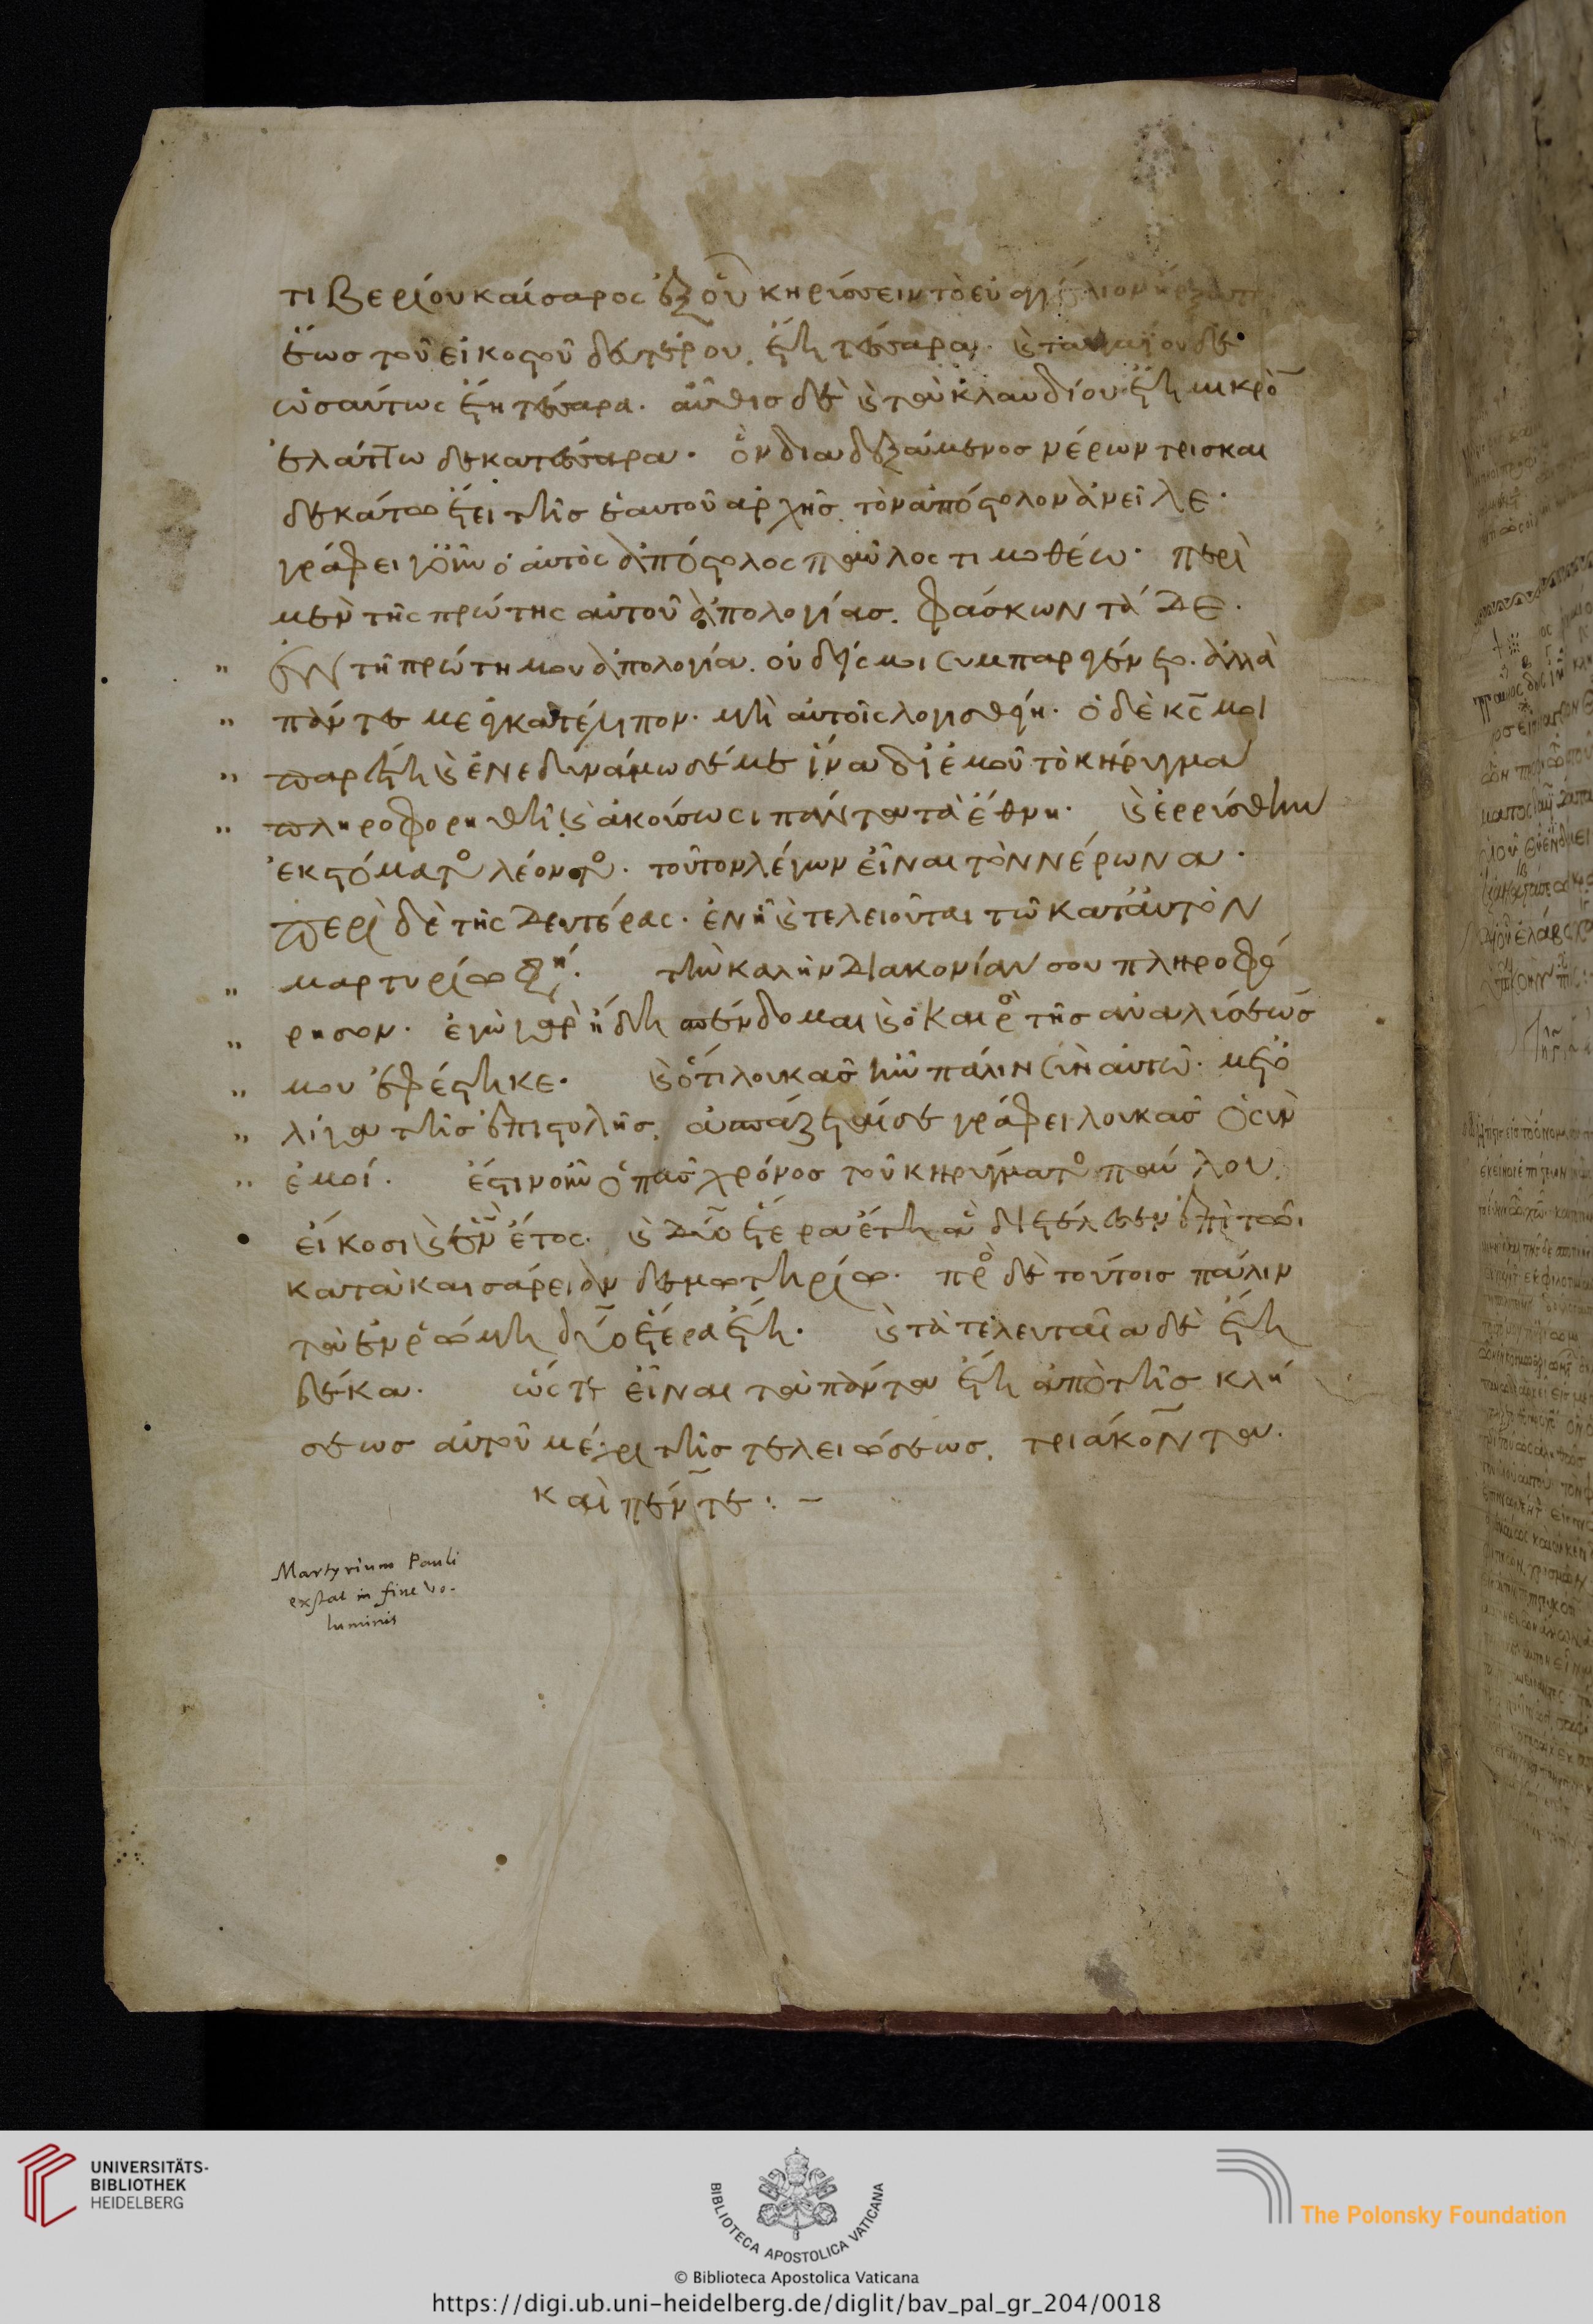 τιβερίου καίσαρος ἐξ οὗ κηρύσσειν τὸ εὐαγγέλιον
ἕως τοῦ εἰκοστοῦ δευτέρου. ἔτη τέσσαρα. ϗ γαΐου δὲ
ὡσαύτως ἔτη τέσσαρα. αὖθις δὲ ϗ τοῦ κλαυδίου ἔτη μικρὸ
ἐλάττω δεκατέσσαρα. ὃν διαδεξάμενος νέρων τρισκαι
δεκάτω ἔτει τῆς ἑαυτοῦ ἀρχῆς. τὸν ἀπόστολον ἀνεῖλε.
γράφει γοῦν ὁ αὐτὸς ἀπόστολος παῦλος τιμοθέω. περὶ
μὲν τῆς πρώτης αὐτοῦ ἀπολογίας. φάσκων τάδε.
" ἐν τῆ πρώτη μου ἀπολογία. οὐδείς μοι συμπαρεγένετο. ἀλλὰ
" πάντε με ἐγκατέλιπον. μὴ αὐτοῖς λογισθείη. ὁ δὲ κ̅ς̅ μοι
" παρέστη ϗ ἐνεδυνάμωσέ με ἵνα δι ἐμοῦ τὸ κήρυγμα
" πληροφορηθῆ. ϗ ἀκούσωσι πάντα τὰ ἔθνη. ϗ ἐρρύσθην
ἐκ στόματο λέοντο. τοῦτον λέγων εἶναι τὸν νέρωνα.
περὶ δὲ τῆς δευτέρας. ἐν ἧ ϗ τελειοῦται τῶ κατ αὐτὸν
" μαρτυρίω φη. τὴν καλὴν διακονίαν σου πληροφό
" ρησον. ἐγὼ γὰρ ἤδη σπένδομαι ϗ ὁ καιρὸ τῆς ἀναλύσεώς
" μου ἐφέστηκε. ϗ ὅτι λουκᾶς ἦν πάλιν σὺν αὐτῶ. μετ ὀ
" λίγα τῆς ἐπιστολῆς. ἀσπάζεταί σε γράφει λουκᾶς ὁ σὺν
" ἐμοί. ἔστιν οὖν ὁ πᾶς χρόνος τοῦ κηρύγματο παύλου.
εἴκοσι ϗ ἓν ἔτος. ϗ δύο ἕτερα ἔτη ἃ διετέλεσεν ἐπὶ τῶι
κατὰ καισάρειαν δεσμωτηρίω. πρὸ δὲ τούτοις πάλιν
τὰ ἐν ῥώμη δύο ἕτερα ἔτη. ϗ τὰ τελευταῖα δὲ ἔτη
δέκα. ὥστε εἶναι τὰ πάντα ἔτη ἀπὸ τῆς κλή
σεως αὐτοῦ μέχρι τῆς τελειώσεως. τριάκοντα.
καὶ πέντε : –
Martyrium Pauli
exstat in fine vo-
luminis
UNIVERSITÄTS-
BIBLIOTHEK
HEIDELBERG
BIBLIOTECA APOSTOLICA VATICANA
The Polonsky Foundation
© Biblioteca Apostolica Vaticana
https://digi.ub.uni-heidelberg.de/diglit/bav_pal_gr_204/0018